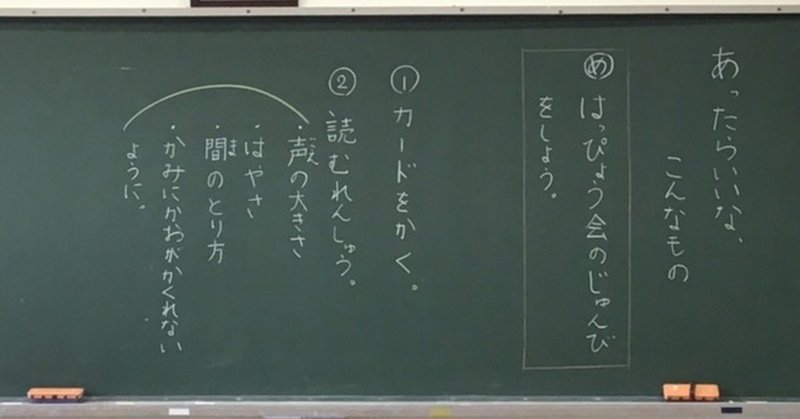 あったらいいな、
こんなもの
め はっぴょう会のじゅんび
をしよう。
① カードをかく。
② 読むれんしゅう。
・声の大きさ
こえ
・はやさ
・間のとり方
ま
・かみにかおがかくれない
ように。